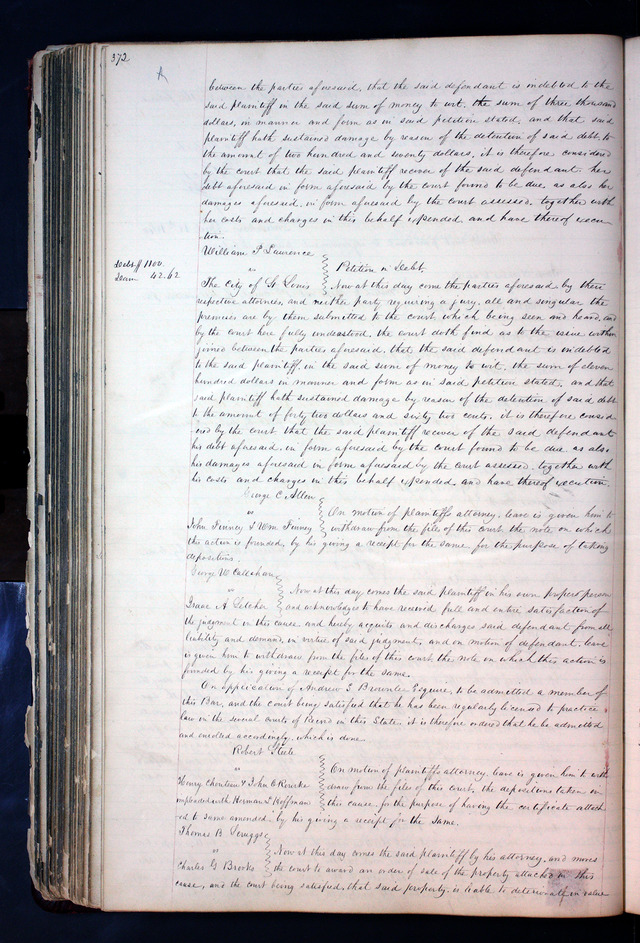 372
between the parties aforesaid, that the said defendant is indebted to the
said plaintiff in the said sum of money to wit, the sum of three thousand
dollars, in manner and form as in said petition stated, and that said
plaintiff hath sustained damage by reason of the detention of said debt, to
the amount of two hundred and seventy dollars, it is therefore considered
by the court that the said plaintiff recover of the said defendant her
debt aforesaid in form aforesaid by the court found to be due, as also her
damages aforesaid, in form aforesaid by the court assessed, together with
her costs and charges in this behalf expended, and have thereof execu
tion.
William P Lawrence
Debt $ 1100.
Dam 42.62
vs Petition in Debt.
The City of St Louis Now at this day come the parties aforesaid by their
respective attornies, and neither party requiring a jury, all and singular the
premises are by them submitted to the court, which being seen and heard, and
by the court here fully understood, the court doth find as to the issue within
joined between the parties aforesaid, that the said defendant is indebted
to the said plaintiff, in the said sum of money to wit, the sum of eleven
hundred dollars in manner and form as in said petition stated, and that
said plaintiff hath sustained damage by reason of the detention of said debt
to the amount of forty two dollars and sixty two cents, it is therefore consid
ered by the court that the said plaintiff recover of the said defendant
his debt aforesaid, in form aforesaid by the court found to be due as also
his damages aforesaid in form aforesaid by the court assessed, together with
his costs and charges in this behalf expended, and have thereof execution.
George C Allen
vs On motion of plaintiffs attorney, leave is given him to
John Finney & Wm Finney withdraw from the files of this court, the note on which
this action is founded, by his giving a receipt for the same, for the purpose of taking
depositions.
George W Callahan
vs Now at this day, comes the said plaintiff in his own proper person
Isaac A Letcher and acknowledges to have received full and entire satisfaction of
the judgment in this cause and hereby acquits and discharges said defendant from all
liability and demand, in virtue of said judgment, and on motion of defendant, leave
is given him to withdraw from the files of this court the note on which this action is
founded by his giving a receipt for the same.
On application of Andrew Brownlee Esquire, to be admitted a member of
this Bar, and the court being satisfied that he has been regularly licensed to practice
law in the several courts of Record in this State. it is therefore ordered that he be admitted
and enrolled accordingly, which is done.
Robert Steele
vs On motion of plaintiffs attorney, leave is given him to with
Henry Chouteau & John draw from the files of this court, the depositions taken in
impleaded with Herman L Hoffman this cause, for the purpose of having the certificate attach
ed to same amended, by his giving a receipt for the same.
Thomas B Scruggs
vs Now at this day comes the said plaintiff by his attorney, and moves
Charles G Brooks the court to award an order of sale of the property attached in this
cause, and the court being satisfied, that said property, is liable to deteriorate in value